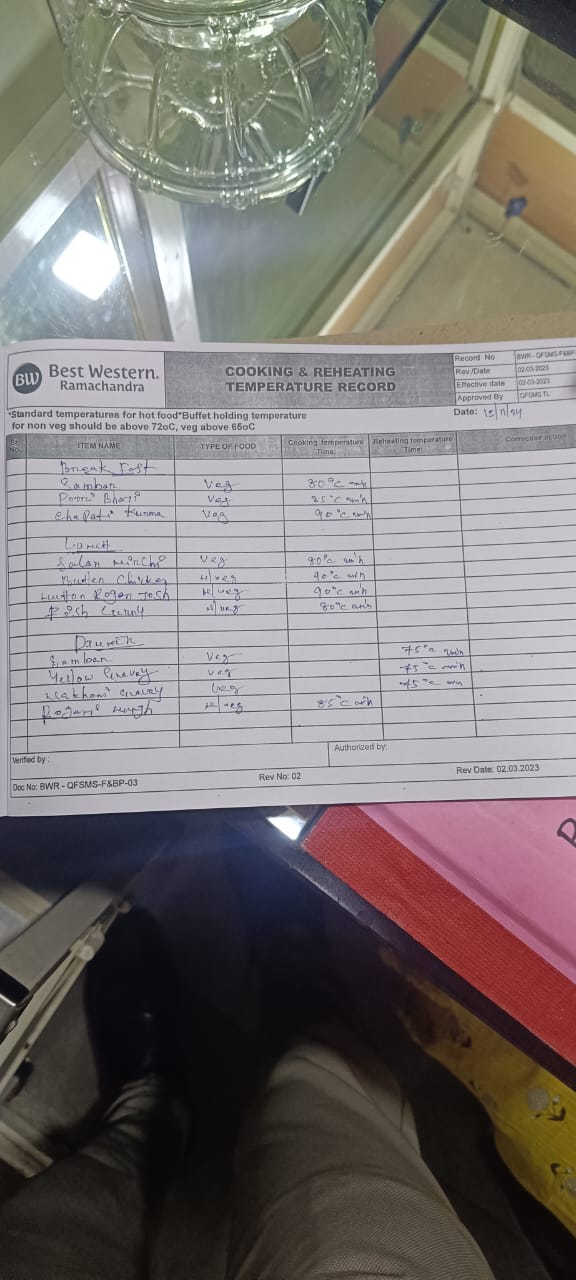 BW Best Western.
Ramachandra
COOKING & REHEATING
TEMPERATURE RECORD
Record No BWR - QFSMS-F&BP
Rev./Date 02-03-2023
Effective date 02-03-2023
Approved By QFSMS TL
*Standard temperatures for hot food*Buffet holding temperature
for non veg should be above 72oC, veg above 65oC
Date:
Sr. No. ITEM NAME TYPE OF FOOD Cooking temperature Time: Reheating temperature Time: Corrective action
Break Fast
Sambar Veg 80°C
Poori Bhaji Veg
Chapati Kurma Veg 90°C
Lunch
Salan Mirchi Veg 80°C
Chicken N/veg 90°C
Mutton Rogan Josh N/veg 90°C
Fish Curry N/veg 80°C
Sambar Veg 75°C
Yellow Gravey Veg 75°C
Makhani Gravey Veg
N/veg 85°C
Verified by :
Authorized by:
Doc No: BWR - QFSMS-F&BP-03 Rev No: 02 Rev Date: 02.03.2023